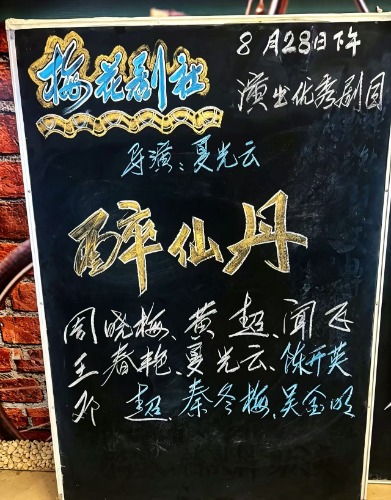 梅花剧社
8月28日下午
演出优秀剧目
导演:夏光云
醉仙丹
周晓梅、黄超、闻飞
王春艳、夏光云、陈开英
邓超、秦冬梅、吴金明